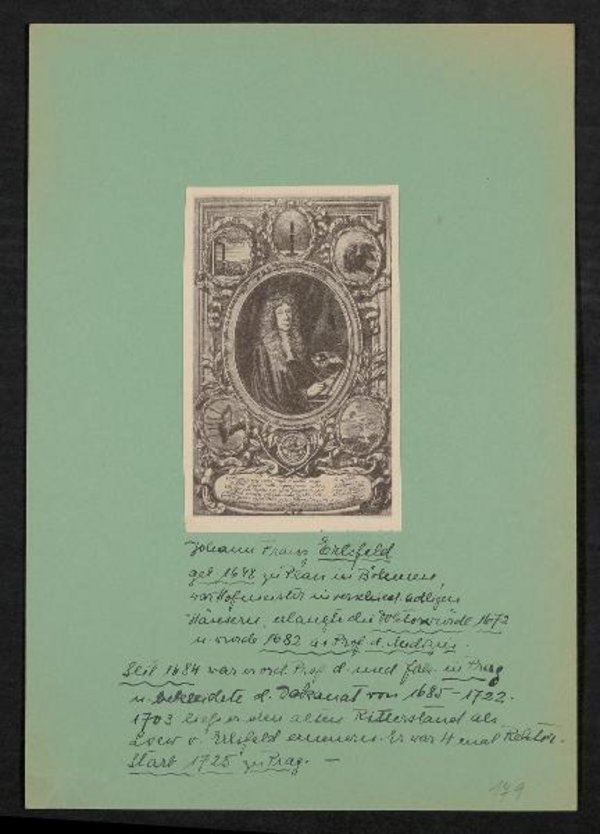 Johann Franz Erlsfeld
geb 1648 zu Plan in Böhmen,
war Hofmeister in verschied. adligen
Häusern, erlangte die Doktorwürde 1672
u. wurde 1682 ao Prof. d. Medizin.
Seit 1684 war er ord. Prof. d. med. Fak. in Prag
u. bekleidete d. Dekanat von 1685-1722.
1703 ließ er den alten Ritterstand als
Loew v. Erlsfeld erneuern. Er war 4 mal Rektor.
Starb 1725 zu Prag. —
179